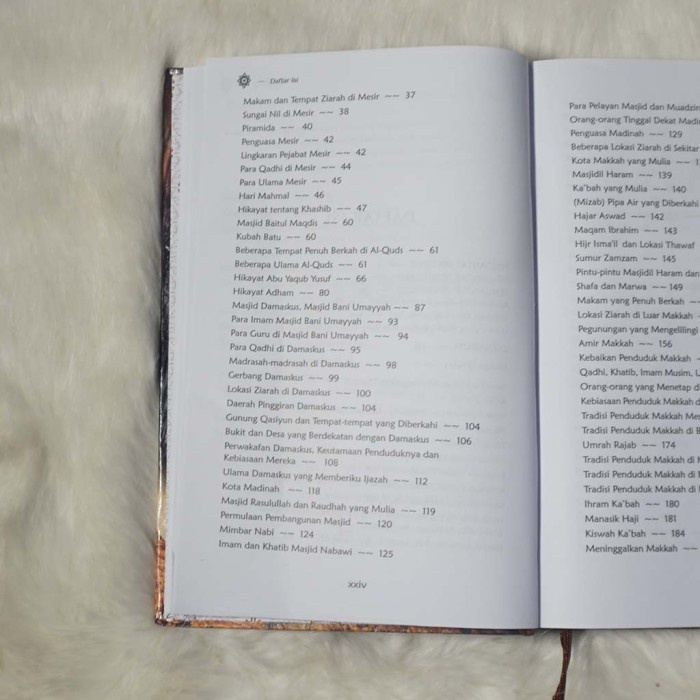 Daftar isi
Makam dan Tempat Ziarah di Mesir ~~ 37
Sungai Nil di Mesir ~~ 38
Piramida ~~ 40
Penguasa Mesir ~~ 42
Lingkaran Pejabat Mesir ~~ 42
Para Qadhi di Mesir ~~ 44
Para Ulama Mesir ~~ 45
Hari Mahmal ~~ 46
Hikayat tentang Khashib ~~ 47
Masjid Baitul Maqdis ~~ 60
Kubah Batu ~~ 60
Beberapa Tempat Penuh Berkah di Al-Quds ~~ 61
Beberapa Ulama Al-Quds ~~ 61
Hikayat Abu Yaqub Yusuf ~~ 66
Hikayat Adham ~~ 80
Masjid Damaskus, Masjid Bani Umayyah ~~ 87
Para Imam Masjid Bani Umayyah ~~ 93
Para Guru di Masjid Bani Umayyah ~~ 94
Para Qadhi di Damaskus ~~ 95
Madrasah-madrasah di Damaskus ~~ 98
Gerbang Damaskus ~~ 99
Lokasi Ziarah di Damaskus ~~ 100
Daerah Pinggiran Damaskus ~~ 104
Gunung Qasiyun dan Tempat-tempat yang Diberkahi ~~ 104
Bukit dan Desa yang Berdekatan dengan Damaskus ~~ 106
Perwakafan Damaskus, Keutamaan Penduduknya dan
Kebiasaan Mereka ~~ 108
Ulama Damaskus yang Memberiku Ijazah ~~ 112
Kota Madinah ~~ 118
Masjid Rasulullah dan Raudhah yang Mulia ~~ 119
Permulaan Pembangunan Masjid ~~ 120
Mimbar Nabi ~~ 124
Imam dan Khatib Masjid Nabawi ~~ 125
xxiv
Para Pelayan Masjid dan Muadzin
Orang-orang Tinggal Dekat
Penguasa Madinah ~~ 129
Beberapa Lokasi Ziarah di Sekitar
Kota Makkah yang Mulia ~~
Masjidil Haram ~~ 139
Ka'bah yang Mulia ~~ 140
(Mizab) Pipa Air yang Diberkahi
Hajar Aswad ~~ 142
Maqam Ibrahim ~~ 143
Hijr Isma'il dan Lokasi Thawaf
Sumur Zamzam ~~ 145
Pintu-pintu Masjidil Haram dan
Shafa dan Marwa ~~ 149
Makam yang Penuh Berkah ~~
Lokasi Ziarah di Luar Makkah
Pegunungan yang Mengelilingi
Amir Makkah ~~ 156
Kebaikan Penduduk Makkah
Qadhi, Khatib, Imam Musim,
Orang-orang yang Menetap
Kebiasaan Penduduk Makkah
Tradisi Penduduk Makkah
Tradisi Penduduk Makkah di
Umrah Rajab ~~ 174
Tradisi Penduduk Makkah di
Tradisi Penduduk Makkah di
Tradisi Penduduk Makkah di
Ihram Ka'bah ~~ 180
Manasik Haji ~~ 181
Kiswah Ka'bah ~~ 184
Meninggalkan Makkah ~~